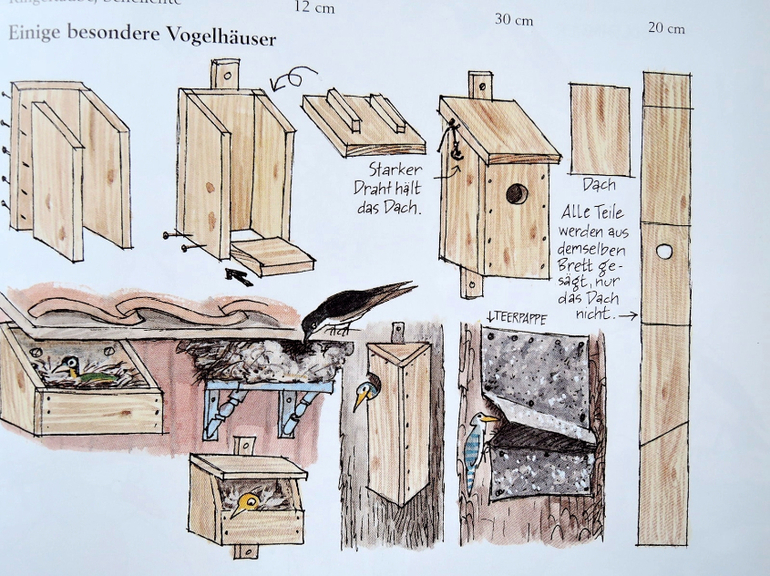 12 cm
30 cm
20 cm
Einige besondere Vogelhäuser
Starker
Draht hält
das Dach.
Dach
Alle Teile
werden aus
demselben
Brett ge-
sägt, nur
das Dach
nicht.
TEERPAPPE